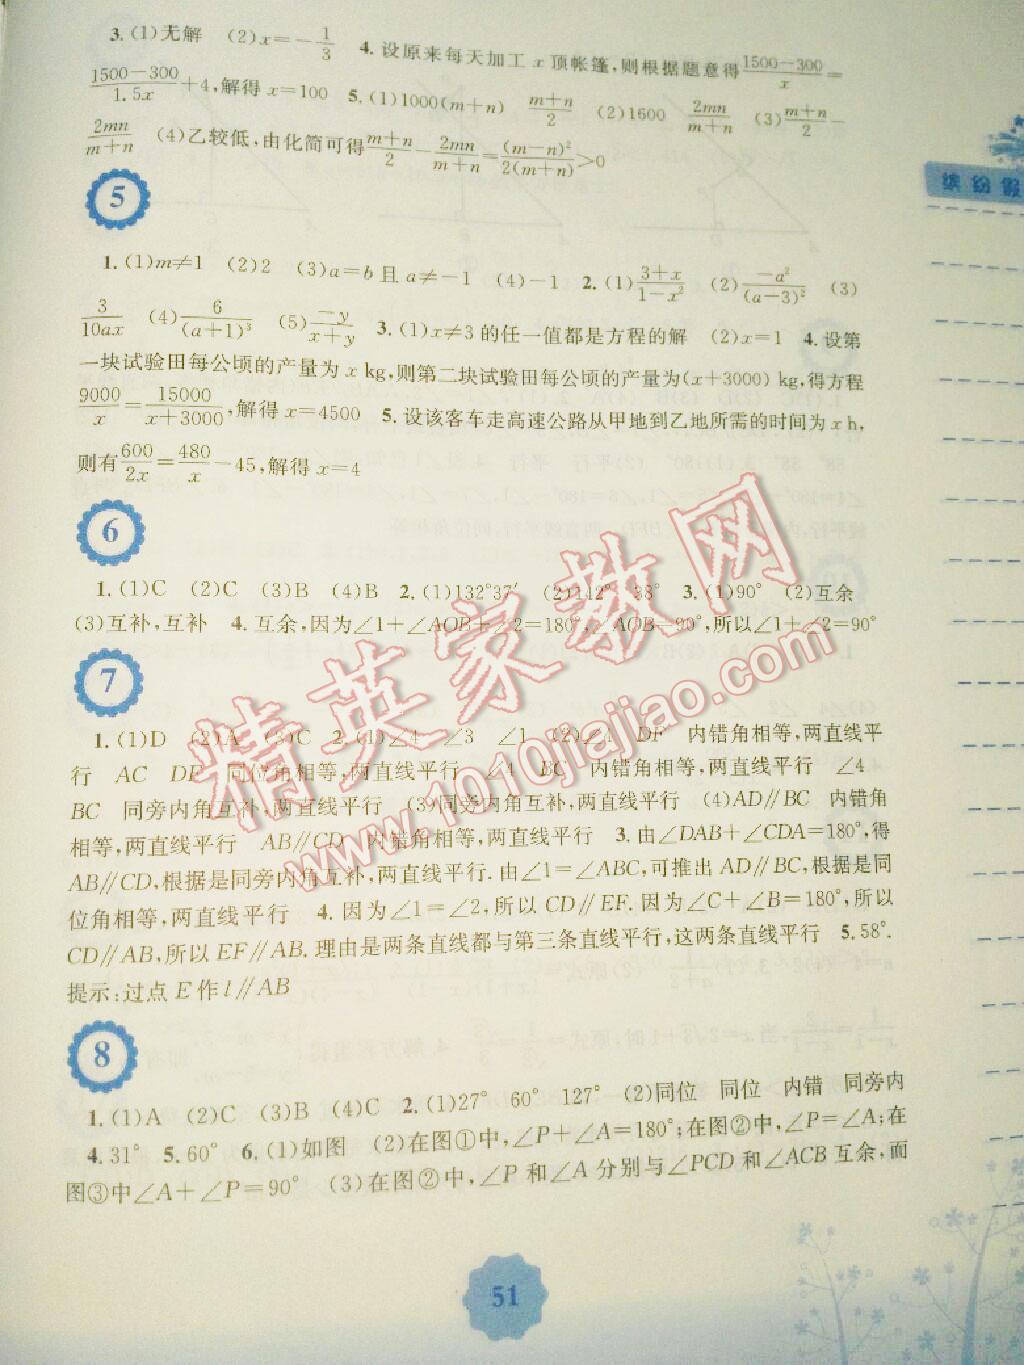 3. (1)无解 (2)x=-1/3 4. 设原来每天加工 x 顶帐篷,则根据题意得(1500-300)/x=
(1500-300)/1.5x+4,解得 x=100 5. (1)1000(m+n) (m+n)/2 (2)1600 2mn/(m+n) (3)(m+n)/2-
2mn/(m+n) (4)乙较低,由化简可得(m+n)/2-2mn/(m+n)=(m-n)²/2(m+n)>0
缤纷假
5
1. (1)m≠1 (2)2 (3)a=b 且 a≠-1 (4)-1 2. (1)(3+x)/(1-x²) (2)-a²/(a-3)² (3)
3/10ax (4)6/(a+1)³ (5)-y/(x+y) 3. (1)x≠3 的任一值都是方程的解 (2)x=1 4. 设第
一块试验田每公顷的产量为 x kg,则第二块试验田每公顷的产量为(x+3000) kg,得方程
9000/x=15000/(x+3000),解得 x=4500 5. 设该客车走高速公路从甲地到乙地所需的时间为 x h,
则有600/2x=480/x-45,解得 x=4
6
1. (1)C (2)C (3)B (4)B 2. (1)132°37′ (2)142° 38° 3. (1)90° (2)互余
(3)互补,互补 4. 互余,因为∠1+∠AOB+∠2=180°,∠AOB=90°,所以∠1+∠2=90°
7
1. (1)D (2)A (3)C 2. (1)∠4 ∠3 ∠1 (2)∠1 DF 内错角相等,两直线平
行 AC DF 同位角相等,两直线平行 ∠4 BC 内错角相等,两直线平行 ∠4
BC 同旁内角互补,两直线平行 (3)同旁内角互补,两直线平行 (4)AD∥BC 内错角
相等,两直线平行 AB∥CD 内错角相等,两直线平行 3. 由∠DAB+∠CDA=180°,得
AB∥CD,根据是同旁内角互补,两直线平行. 由∠1=∠ABC,可推出 AD∥BC,根据是同
位角相等,两直线平行 4. 因为∠1=∠2,所以 CD∥EF. 因为∠C+∠B=180°,所以
CD∥AB,所以 EF∥AB. 理由是两条直线都与第三条直线平行,这两条直线平行 5. 58°.
提示:过点 E 作 l∥AB
8
1. (1)A (2)C (3)B (4)C 2. (1)27° 60° 127° (2)同位 同位 内错 同旁内
4. 31° 5. 60° 6. (1)如图 (2)在图①中,∠P+∠A=180°;在图②中,∠P=∠A;在
图③中∠A+∠P=90° (3)在图②中,∠P 和∠A 分别与∠PCD 和∠ACB 互余,而
51
精英家教网
www.1010jiajiao.com